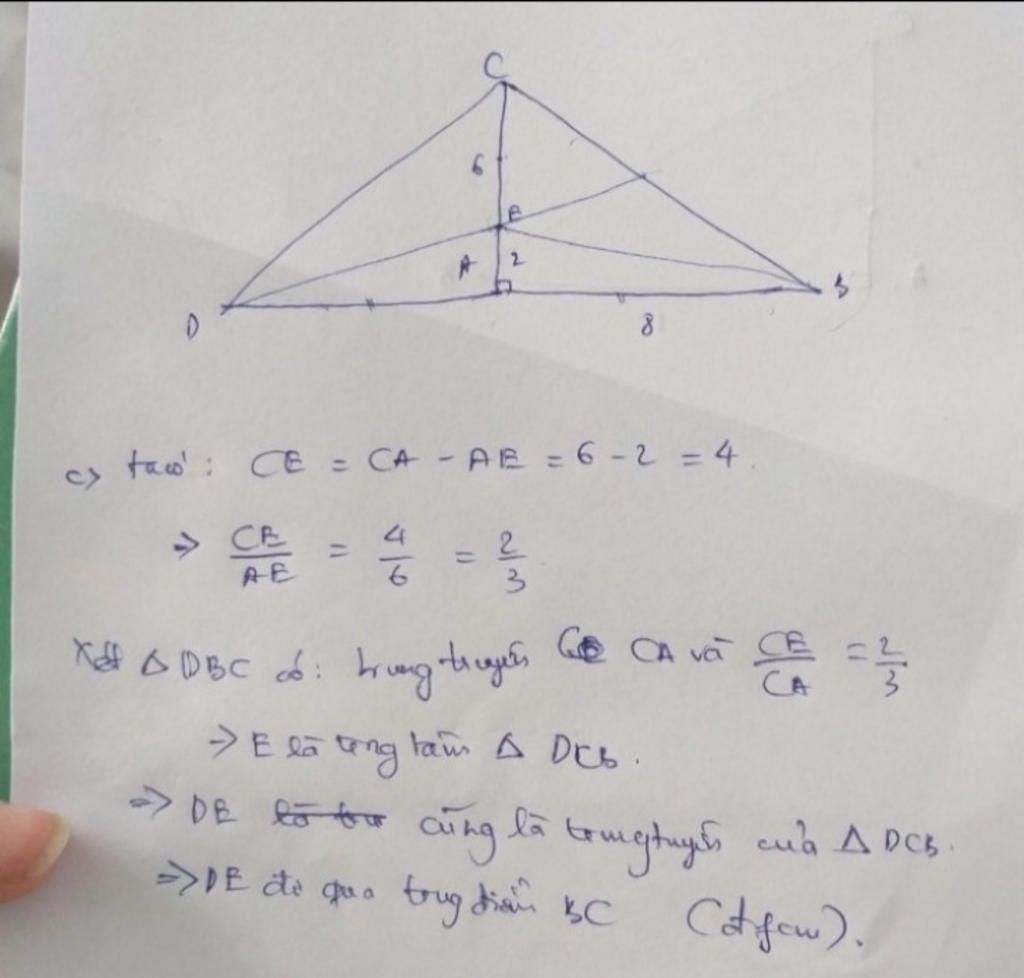 C
6
E
A 2
D
8
B
c) ta có: CE = CA - AE = 6 - 2 = 4.
=> CE/AE = 4/6 = 2/3
Xét Δ DBC có: trung tuyến CA và CE/CA = 2/3
=> E là trọng tâm Δ DCB.
=> DE cũng là trung tuyến của Δ DCB.
=> DE đi qua trung điểm BC (đpcm).